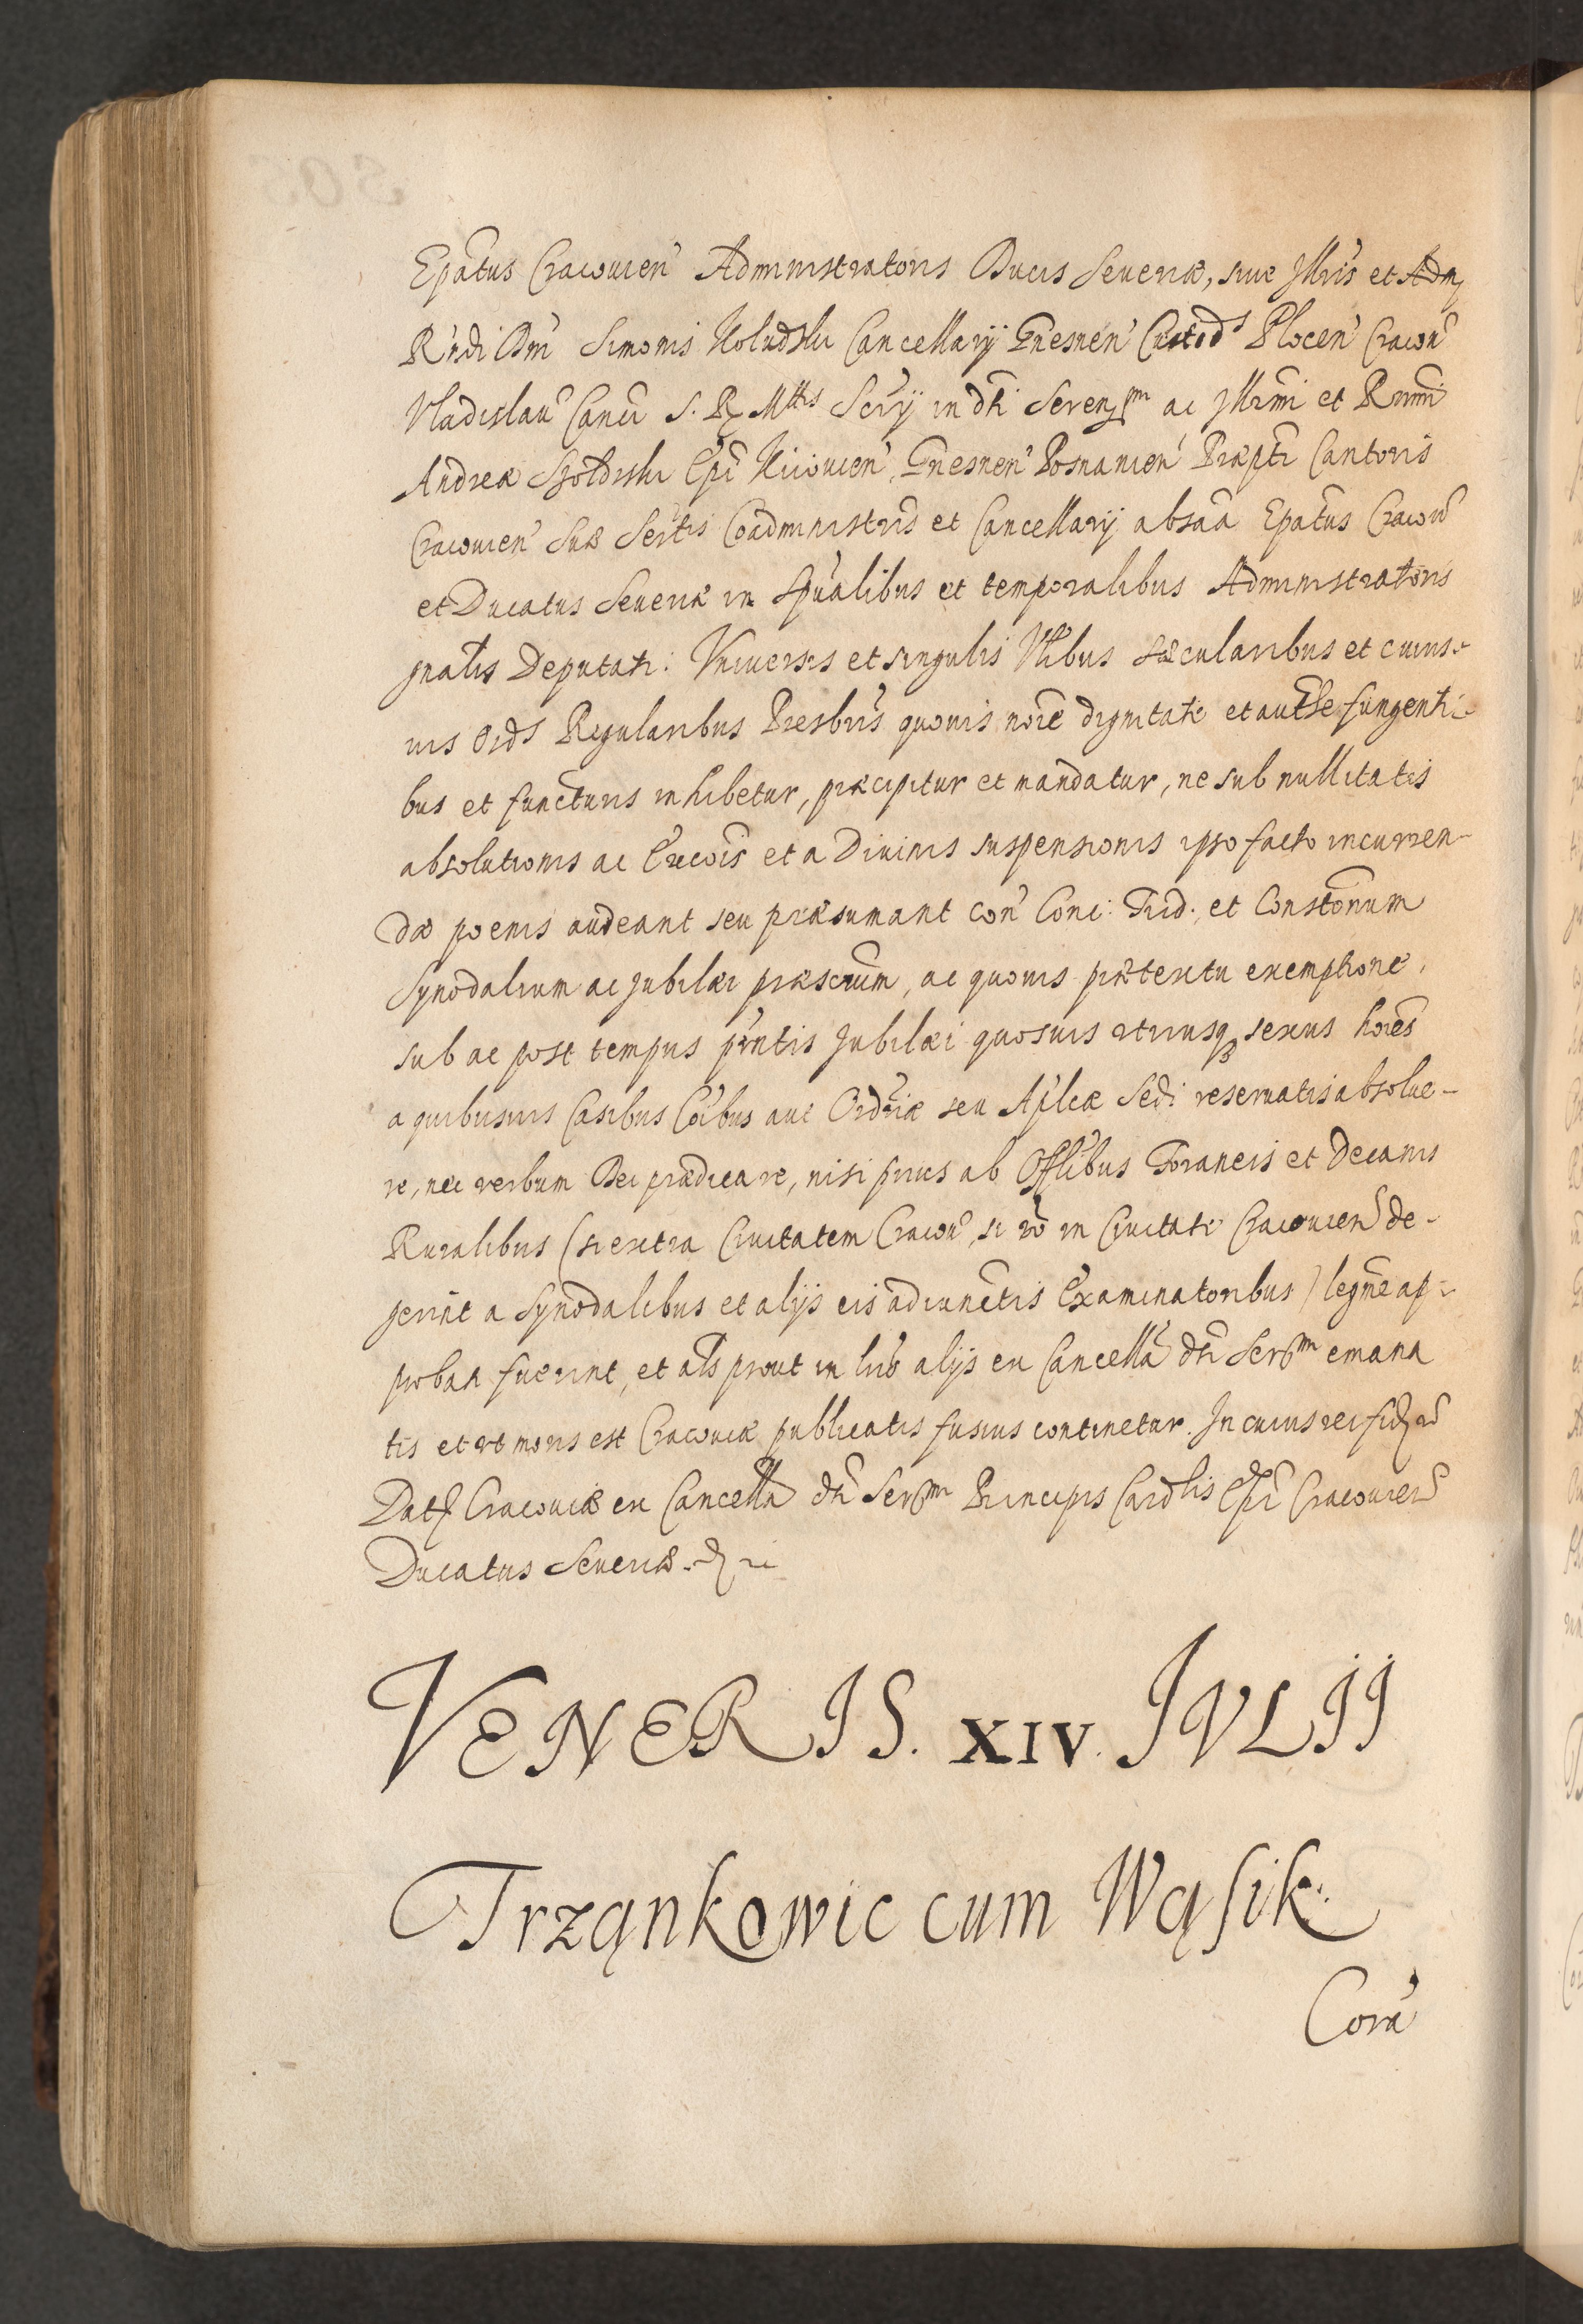 Epatus Cracouien Administratoris Ducis Seueriæ, siue Jllris et Adm
Rndi Dni Simonis Koludzki Cancellarij Gnesnen Custod Plocen Cracou
Vladislau Canci S. R. Mttis Scrij in dti Seren ac Jllrmi et Rmmi
Andreæ Szołdrski Epi Kiiouien, Gnesnen Posnanien Præpti Cantoris
Cracouien Suæ Sertis Coadministris et Cancellarij absa Epatus Cracou
et Ducatus Seueriæ in Spualibus et temporalibus Administratoris
gnalis Deputati. Vniuersis et singulis Vtibus sæcularibus et cuius-
uis Ords Regularibus Presbris quouis noie dignitate et autte fungenti-
bus et functuris inhibetur, præcipitur et mandatur, ne sub nullitatis
absolutionis ac Excois et a Diuinis suspensionis ipso facto incurren-
dæ poenis audeant seu præsumant con Conc: Trid: et Constonum
Synodalium ac Jubilæi præscrium, ac quouis prætextu exemptione,
sub ac post tempus pntis Jubilæi quosuis vtriusq sexus hoies
a quibusuis Casibus Coibus aut Ordriæ seu Aplicæ Sedi reseruatis absolue-
re, nec verbum Dei prædicare, nisi prius ab Offlibus Foraneis et Decanis
Ruralibus (si extra Ciuitatem Cracou, si vo in Ciuitate Cracouien de-
gerint a Synodalibus et alijs eis adiunctis Examinatoribus) legme ap-
probati fuerint, et als prout in lris alijs ex Cancella dti Serm emana
tis et vt moris est Cracouiæ publicatis fusius continetur. In cuius rei fid
Dat Cracouiæ ex Cancella dti Serm Principis Cardlis Epi Cracouien
Ducatus Seueriæ.
VENERIS. XIV. JVLIJ
Trząnkowic cum Wąsik
Cora